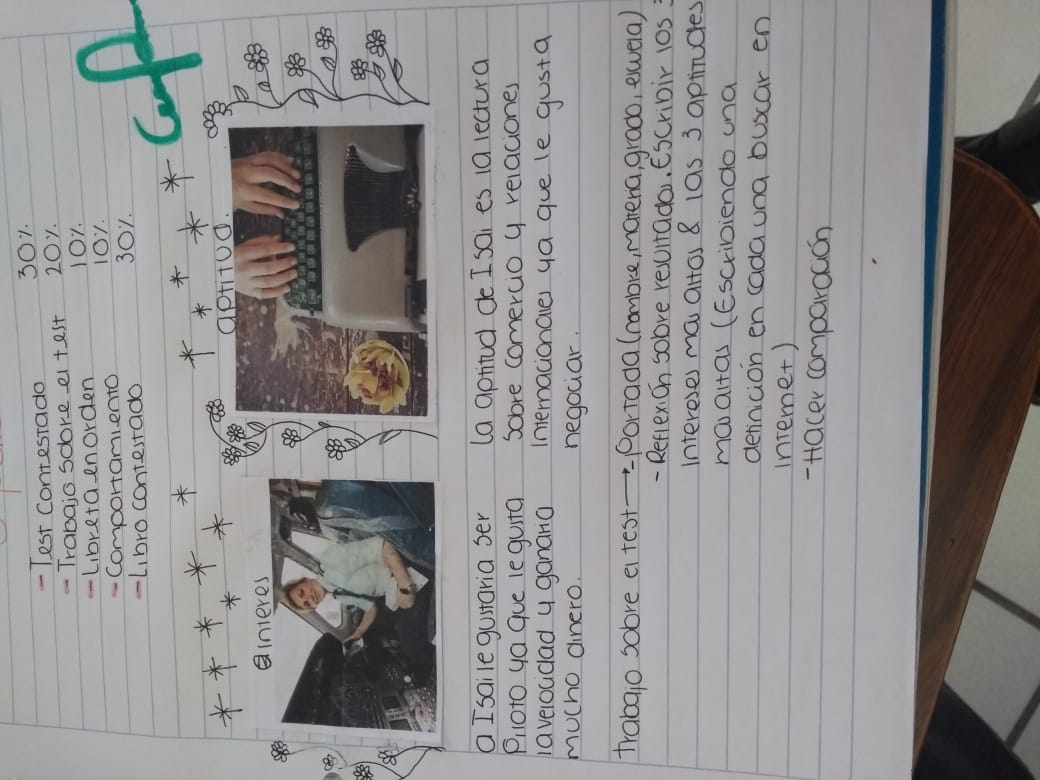 - Test contestado 30%
- Trabajo sobre el test 20%
- Libreta en orden 10%
- Comportamiento 10%
- Libro contestado 30%
interes
aptitud.
a Isai le gustaria ser
Piloto ya que le gusta
la velocidad y ganaria
mucho dinero.
la aptitud de Isai es la lectura
sobre comercio y relaciones
Internacionales ya que le gusta
negociar.
Trabajo sobre el test → - Portada (nombre, materia, grado, escuela)
- Reflexión sobre resultados. Escribir los 3
Intereses mas altos & las 3 aptitudes
mas altas (Escribiendo una
definición en cada una buscar en
Internet)
- Hacer comparación